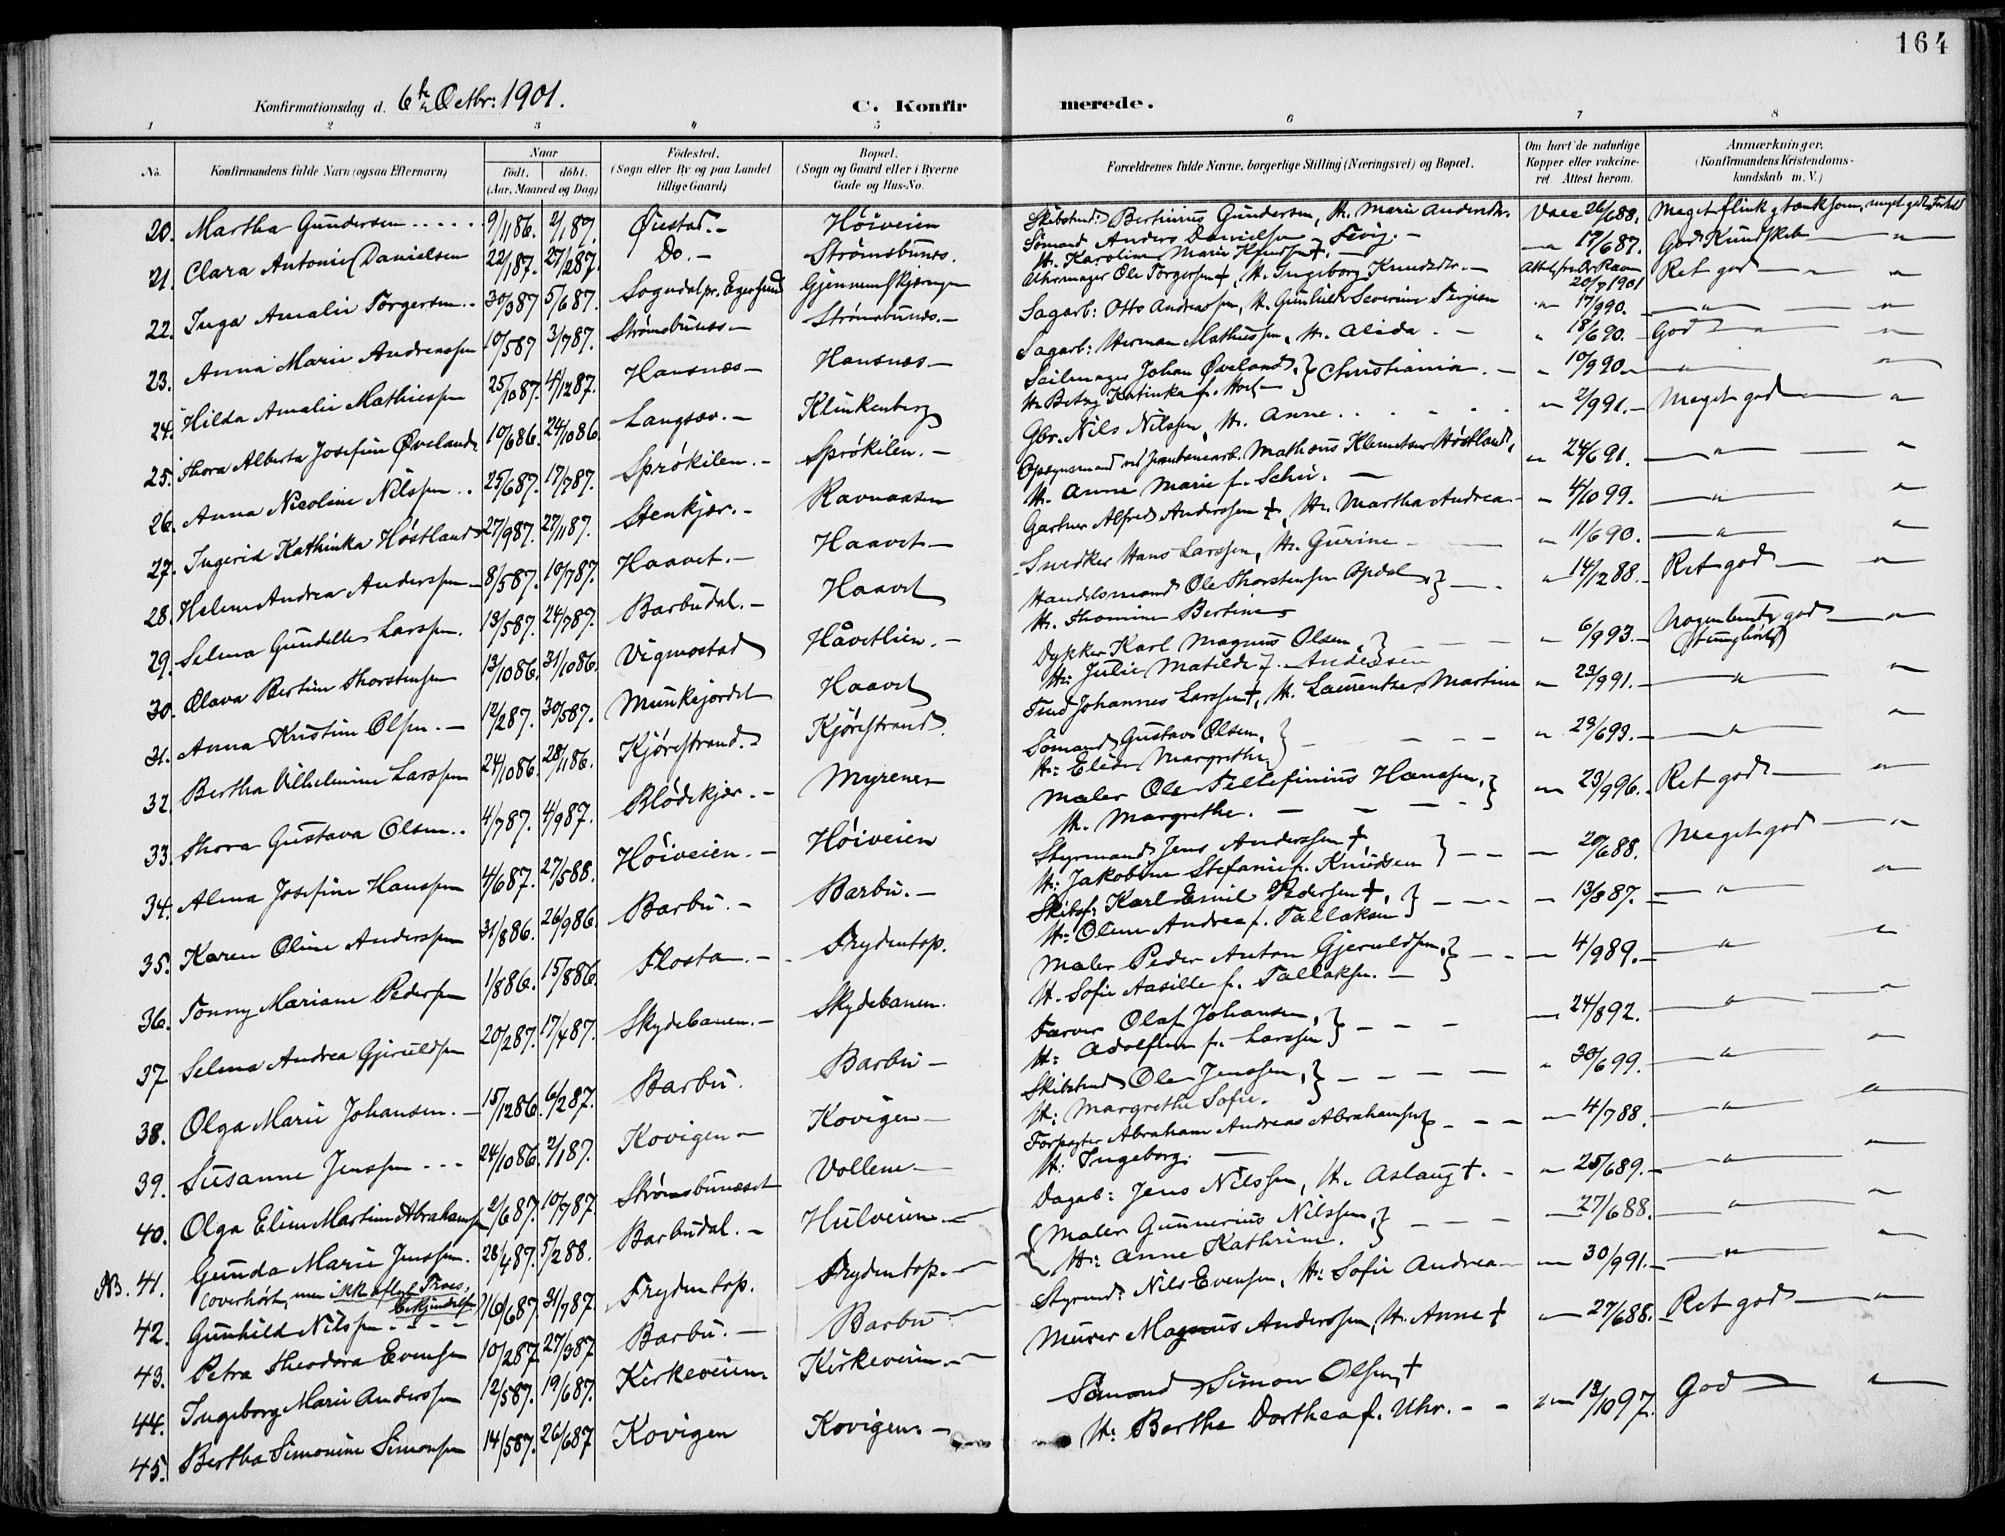 164
Konfirmationsdag d. 6te Octbr: 1901.
C. Konfirmerede.
1 2 3 4 5 6 7 8
No.
Konfirmandens fulde Navn (ogsaa Efternavn)
Naar
født. døbt.
(Aar, Maaned og Dag)
Fødested.
(Sogn eller By og paa Landet
tillige Gaard)
Bopæl.
(Sogn og Gaard eller i Byerne
Gade og Hus-No.
Forældrenes fulde Navne, borgerlige Stilling (Næringsvei) og Bopæl.
Om havt de naturlige
Kopper eller vakcine-
ret. Attest herom.
Anmærkninger.
(Konfirmandens Kristendoms-
kundskab m. V.)
20. Martha Gundersen 9/1186. 2/187. Øiestad. Höiveien Skibstmd: Bertinius Gundersen, H. Marie Andersdtr. Vacc 26/688. Meget flink
21. Clara Antonie Danielsen 22/187. 27/287. Do. Strømsbunes. Sömand Anders Danielsen Fevig.
H. Karoline Marie 17/687. God Kundskab
22. Inga Amalie Torgersen 30/387 5/687. Sogndal pr. Egersund Gjennemskjæringen Uhrmager Ole Torgersen +, H. Ingeborg Knudsdtr. 20/7 1901 Ret god
23. Anna Marie Andreassen 10/587 3/787. Strømsbunes Strømsbunes. Sagarb: Otto Andreassen, H. Gunhild Severine Terjesen 17/990.
24. Hilda Amalie Mathiessen 25/1087. 4/1287. Hansnæs Hansnæs Sagarb: Herman Mathiessen, H. Alida. 18/690. God
25. Thora Alberta Josefine Øveland 10/686. 24/1086. Langsæv. Klinkenberg Seilmager Johan Øveland,
H. Betzy Katinka f. Holt } Christiania. 10/990.
26. Anna Nicoline Nilssen 25/687. 17/787. Sprökilen. Sprökilen. Gbr. Nils Nilssen, H. Anne. 2/991. Meget god
27. Ingerid Kathinka Höstland 27/987. 27/1187. Stenkjær. Ravnaasen Opsynsmand ved Mathæus Klemetsen Höstland,
H. Anne Marie f. Schei. 24/691.
28. Helene Andrea Anderssen 8/587. 10/787. Haavet. Haavet Gartner Alfred Anderssen +, H. Martha Andrea 4/1099.
29. Selma Gundelle Larssen. 13/587. 24/787. Barbudal. Haavet Snedker Hans Larssen, H. Gurine 11/690.
30. Olava Bertine Thorstensen 13/1086. 31/1086. Vigmostad Håvetlien. Handelsmand Ole Thorstensen Opdal,
H. Thomine Bertine } 14/1288. Ret god
31. Anna Kristine Olsen. 12/287. 30/587. Munkejordet Haavet Dykker Karl Magnus Olsen,
H: Julie Matilde f. Anderssen } 6/993. Nogenlunde god
(tunghörtd)
32. Bertha Vilhelmine Larssen 24/1086. 28/1186. Kjörestrand. Kjörestrand. Johannes Larssen +, H. Laurentze Martine 23/991.
33. Thora Gustava Olsen 4/787. 4/987. Blödekjær. Myrene Sömand Gustav Olsen,
H: Elida Margrethe } 23/693.
34. Alma Josefine Hanssen 4/687. 27/588. Höiveien. Höiveien Maler Ole Tellefinius Hanssen,
H. Margrethe. } 23/996. Ret god
35. Karen Oline Anderssen 31/886. 26/986. Barbu. Barbu. Styrmand Jens Anderssen +,
H: Jakobine Stefanie f. Knudsen } 20/688. Meget god
36. Tonny Mariane Pedersen 1/886. 15/886. Flosta. Frydentop. Skibsf: Karl Emil Pedersen +,
H: Oline Andrea f. Tallaksen } 13/887.
37. Selma Andrea Gjeruldsen 20/287. 17/487. Skydebanen. Skydebanen. Maler Peder Anton Gjeruldsen,
H. Sofie Aasille f. Tallaksen. } 4/989.
38. Olga Marie Johansen. 15/1286. 6/287. Barbu. Barbu Farver Olaf Johansen,
H: Adolfine f. Larssen } 24/892.
39. Susanne Jenssen 24/1086. 2/187. Kovigen Kovigen Skibstmd Ole Jenssen,
H: Margrethe Sofie. } 30/699.
40. Olga Eline Martine Abrahamsen 2/687. 10/787. Strømsbuneset Vollene Forpagter Abraham Andreas Abrahamsen
H. Ingeborg. } 4/788.
NB. 41. Gunda Marie Jenssen. 28/487. 5/288. Barbudal. Hulveien Dagab: Jens Nilssen, H. Aslaug +. 25/689.
(overhört, men ikke aflagt Troes-
bekjendelse)
42. Gunhild Nilssen 16/687. 31/787. Frydentop. Frydentop. { Maler Gunnerius Nilssen,
H: Anne Kathrine. } 27/688.
43. Petra Theodora Evensen 10/287. 27/387 Barbu. Barbu Styrmd Nils Evensen, H: Sofie Andrea 30/991.
44. Ingeborg Marie Anderssen 12/587. 19/687. Kirkeveien. Kirkeveien. Murer Magnus Anderssen, H. Anne + 27/688. Ret god
45. Bertha Simonine Simonsen 14/587. 26/687 Kovigen Kovigen. Sömand Simon Olsen, +
H: Berthe Dorthea f. Uhr. 13/1097. God